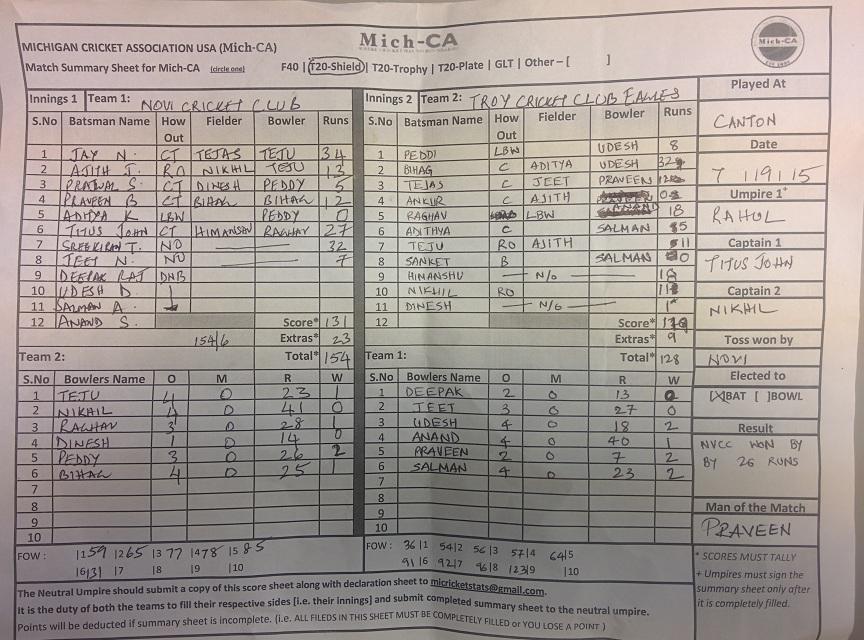 Mich-CA
MICHIGAN CRICKET ASSOCIATION USA (Mich-CA)
Match Summary Sheet for Mich-CA (circle one) F40 | T20-Shield | T20-Trophy | T20-Plate | GLT | Other – [ ]
Mich-CA
Innings 1 Team 1: NOVI CRICKET CLUB
S.No Batsman Name How Out Fielder Bowler Runs
1 JAY N. CT TEJAS TEJU 34
2 AJITH J. RO NIKHIL TEJU 13
3 PRAJWAL S. CT DINESH PEDDY 5
4 PRAVEEN B CT BIHAG BIHAG 12
5 ADITHYA K LBW PEDDY 0
6 TITUS JOHN CT HIMANSHU RAGHAV 27
7 SREEKIRAN T. NO 32
8 JEET N. NO 7
9 DEEPAK RAJ DNB
10 UDESH D.
11 SALMAN A.
12 ANAND S. Score* 131
154/6 Extras* 23
Total* 154
Team 2:
S.No Bowlers Name O M R W
1 TEJU 4 0 23 1
2 NIKHIL 4 0 41 0
3 RAGHAV 3 0 28 1
4 DINESH 1 0 14 0
5 PEDDY 3 0 26 2
6 BIHAG 4 0 25 1
7
8
9
10
FOW : |1 59 |2 65 |3 77 |4 78 |5 85
|6 131 |7 |8 |9 |10
Innings 2 Team 2: TROY CRICKET CLUB EAGLES
S.No Batsman Name How Out Fielder Bowler Runs
1 PEDDI LBW UDESH 8
2 BIHAG C ADITYA UDESH 32
3 TEJAS C JEET PRAVEEN
4 ANKUR C AJITH
5 RAGHAV LBW ANAND 18
6 ADITHYA C SALMAN 5
7 TEJU RO AJITH 11
8 SANKET B SALMAN 0
9 HIMANSHU N/O
10 NIKHIL RO
11 DINESH N/O
12 Score*
Extras* 9
Total* 128
Team 1:
S.No Bowlers Name O M R W
1 DEEPAK 2 0 13
2 JEET 3 0 27 0
3 UDESH 4 0 18 2
4 ANAND 4 0 40 1
5 PRAVEEN 2 0 7 2
6 SALMAN 4 0 23 2
7
8
9
10
FOW : 36|1 54|2 56|3 57|4 64|5
91|6 92|7 96|8 123|9 |10
Played At
CANTON
Date
7 | 19 | 15
Umpire 1+
RAHUL
Captain 1
TITUS JOHN
Captain 2
NIKHIL
Toss won by
NOVI
Elected to
[X]BAT [ ]BOWL
Result
NVCC WON BY
BY 26 RUNS
Man of the Match
PRAVEEN
* SCORES MUST TALLY
+ Umpires must sign the
summary sheet only after
it is completely filled.
The Neutral Umpire should submit a copy of this score sheet along with declaration sheet to micricketstats@gmail.com.
It is the duty of both the teams to fill their respective sides [i.e. their innings] and submit completed summary sheet to the neutral umpire.
Points will be deducted if summary sheet is incomplete. (i.e. ALL FILEDS IN THIS SHEET MUST BE COMPLETELY FILLED or YOU LOSE A POINT )